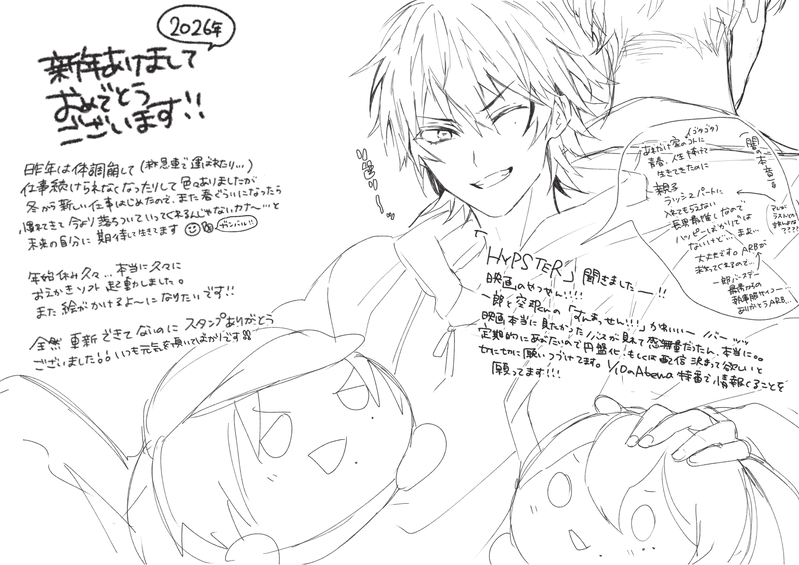 2026年
新年あけまして
おめでとう
ございます!!
昨年は体調崩して(救急車で運ばれたり…)
仕事続けられなくなったりして色々ありましたが
冬から新しい仕事はじめたので、また春ぐらいになったら
慣れてきて今より落ちついていってくれるんじゃないカナ〜…と
未来の自分に期待して生きてます
ガンバル!!
年始休み久々…本当に久々に
おえかきソフト起動しました。
また絵がかけるよ〜になりたいです!!
全然更新できてないのにスタンプありがとう
ございました!!いつも元気を頂いてばかりです
「HYPSTER」聞きましたーー!!
映画のやつせん!!!!
一郎と空却くんの
かわいいー
映画本当に見たかった
が見れて感無量だったん、本当に。。
定期的にあびたいので円盤化!もしくは配信決まって欲しいと
切に切に願いつづけてます。1/10のAbema特番で情報くることを
願ってます!!!
闇の本音
(ブクブク)
青春、人生捧げて
生きてきたのに
親子
ラッシュパートに
入れてもらえない
長男推しなので
ハッピーばかりでは
ないけど…まあ…
大丈夫です。ARBが
一郎バースデー
ありがとうARB…